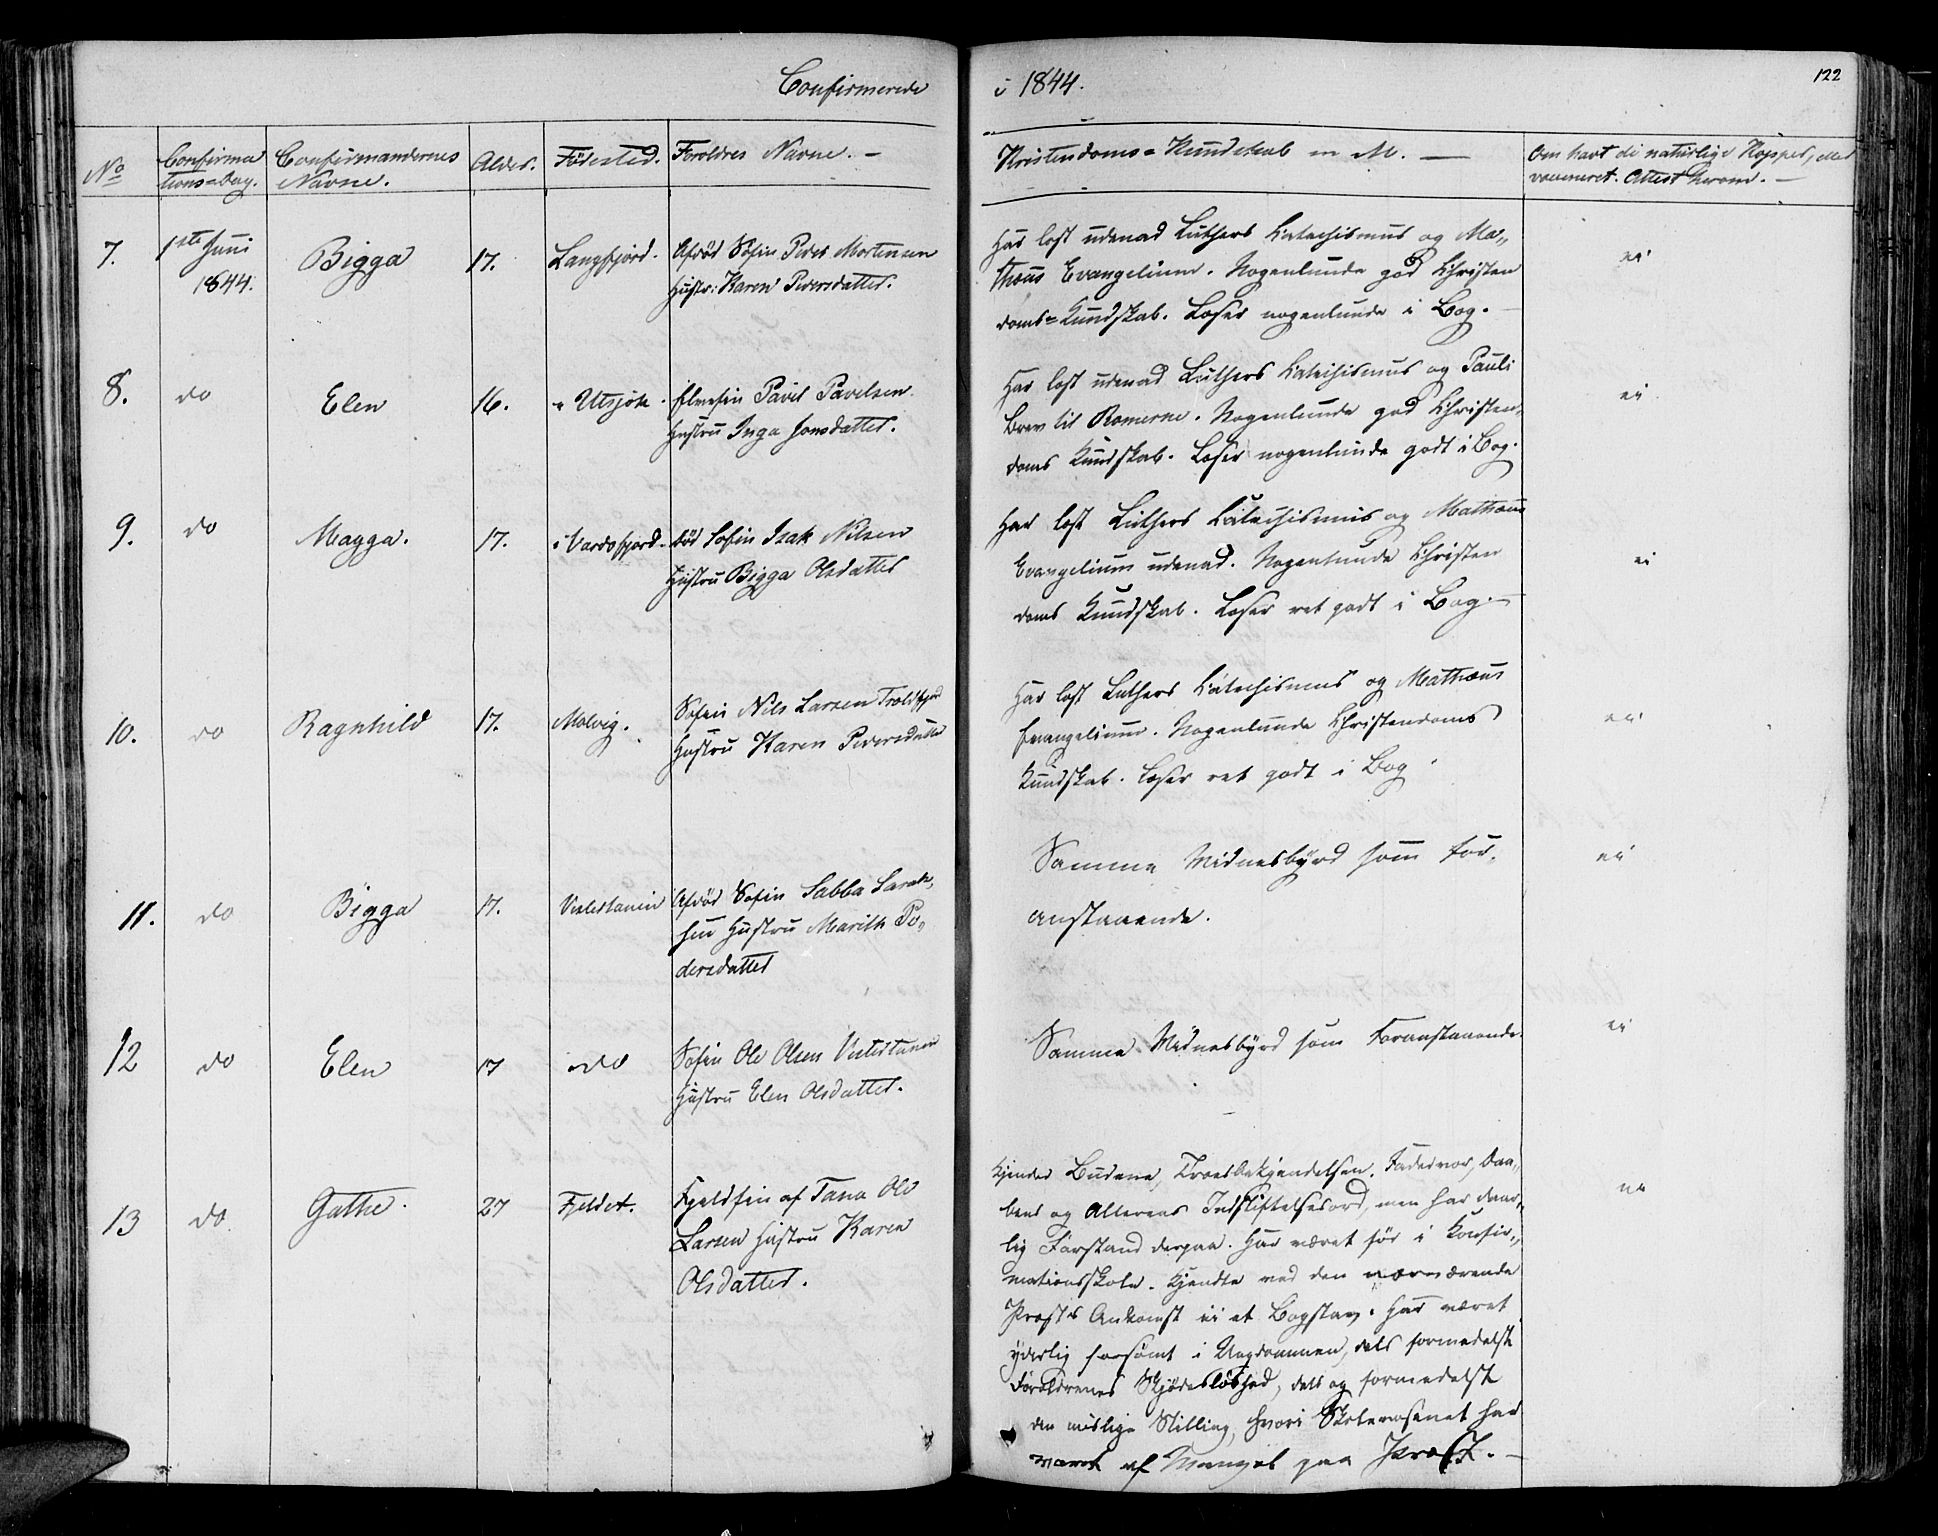 Confirmerede
i 1844.
122
No
Confirma
tions-dag.
Confirmandernes
Navne.
Alder.
Födested.
Foroldres Navne. –
Kristendoms-Kundskab m. M. —
Om havt de naturlige Kopper, eller
vaccineret. Attest herom. –
7.
1ste Juni
1844.
Bigga
17.
Langfjord.
Afdöd Söfin Peder Mortensen
Hustr: Karen Pedersdatter.
Har læst udenad Luthers Katechismus og Ma-
thæus Evangelium. Nogenlunde god Christen
doms-Kundskab. Læser nogenlunde i Bog.
ei
8.
do
Elen
16.
Utsjok.
Elvefin Pavil Pavelsen
Hustru Inga Jonsdatter.
Har læst udenad Luthers Katechismus og Pauli
Brev til Romerne. Nogenlunde god Christen-
doms Kundskab. Læser nogenlunde godt i Bog.
ei
9.
do
Magga.
17.
i Vardofjord.
död Söfin Isak Nilsen
Hustru Bigga Olsdatter
Har læst Luthers Katechismus og Mathæus
Evangelium udenad. Nogenlunde Christen
doms Kundskab. Læser ret godt i Bog. —
ei
10.
do
Ragnhild
17.
Molvig.
Söfin Nils Larsen Troldfjord
Hustru Karen Pedersdatter
Har læst Luthers Katechismus og Mathæus
Evangelium. Nogenlunde Christendoms
Kundskab. Læser ret godt i Bog.
ei
11.
do
Bigga
17.
Vestertanen
Afdöd Söfin Sabba Sarak-
sen Hustru Marith Pe-
dersdatter
Samme Vidnesbyrd som for-
anstaaende.
ei
12
do
Elen
17
do
Söfin Ole Olsen Vestertanen
Hustru Elen Olsdatter.
Samme Vidnesbyrd som Foranstaaende.
ei
13
do
Gathe.
27
Fjeldet.
Fjeldfin af Tana Ole
Larsen Hustru Karen
Olsdatter.
Kjender Budene, Troesbekjendelsen, Fadervor, Daa-
bens og Alterens Indstiftelsesord, men har daar-
lig Forstand derpaa. Har været för i Konfir-
mationsskole. Kjendte ved den nærværende
Præsts Ankomst ei et Bogstav. Har været
yderlig forsömt i Ungdommen, dels formedelst
Foroldrenes Skjödeslöshed, dels og formedelst
den mislige Stilling, hvori Skolevæsenet har
været af Mangel paa Præst. —
ei